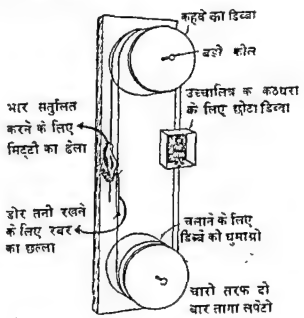 कहवे का डिब्बा
बड़ी कील
उच्चालित्र क कठघरा
के लिए छोटा डिब्बा
भार सतुलित
करने के लिए
मिट्टी का ढेला
डोर तनी रखने
के लिए रबर
का छल्ला
चलाने के लिए
डिब्बे को घुमाओ
चारो तरफ दो
बार तागा लपेटो